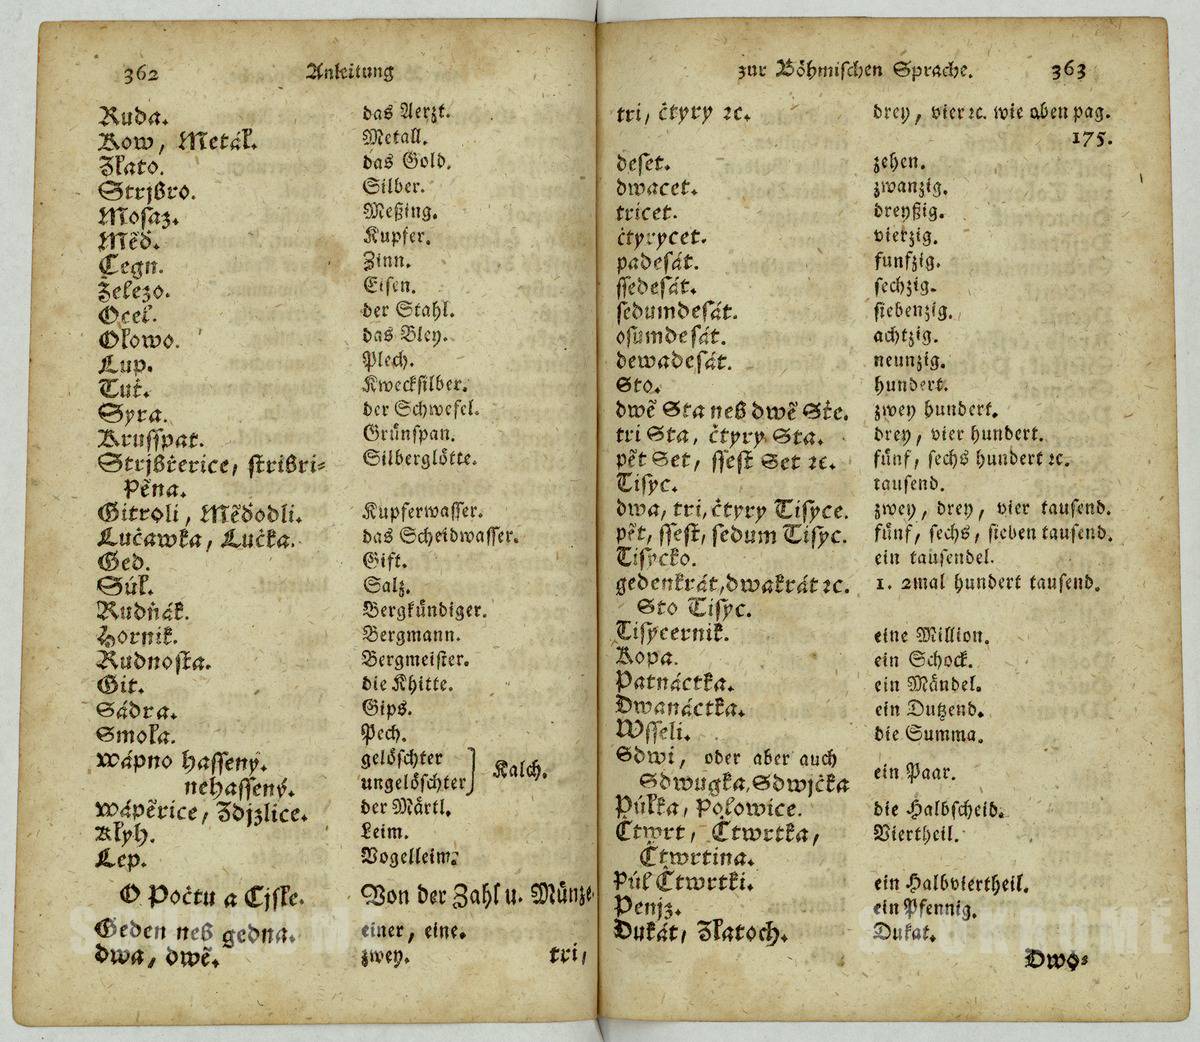 362 Anleitung
Ruda. das Aerzt.
Kow, Metál. Metall.
Zlato. das Gold.
Strjßro. Silber.
Mosaz. Meßing.
Měď. Kupfer.
Cegn. Zinn.
Železo. Eisen.
Ocel. der Stahl.
Olowo. das Bley.
Lup. Plech.
Tut. Kwecksilber.
Syra. der Schwefel.
Krusspat. Grünspan.
Strjßřerice, strißri= Silberglötte.
pěna.
Gitroli, Mědodli. Kupferwasser.
Lučawka, Lučka. das Scheidwasser.
Ged. Gift.
Súl. Salz.
Rudňák. Bergkündiger.
Hornik. Bergmann.
Rudnosta. Bergmeister.
Git. die Khitte.
Sádra. Gips.
Smola. Pech.
wápno hassený. gelöschter
nehassený. ungelöschter} Kalch.
wápěrice, Zdjzlice. der Märtl.
Klyh. Leim.
Lep. Vogelleim.
O Počtu a Cjsle. Von der Zahl u. Münze.
Geden neb gedna. einer, eine.
dwa, dwě. zwey.
tri,
zur Böhmischen Sprache. 363
tri, čtyry ꝛc. drey, vier ꝛc. wie oben pag.
175.
deset. zehen.
dwacet. zwanzig.
tricet. dreyßig.
čtyrycet. vierzig.
padesát. funfzig.
ssedesát. sechzig.
sedumdesát. siebenzig.
osumdesát. achtzig.
dewadesát. neunzig.
Sto. hundert.
dwě Sta neb dwě Ste. zwey hundert.
tri Sta, čtyry Sta. drey, vier hundert.
pět Set, ssest Set ꝛc. fünf, sechs hundert ꝛc.
Tisyc. tausend.
dwa, tri, čtyry Tisyce. zwey, drey, vier tausend.
pět, ssest, sedum Tisyc. fünf, sechs, sieben tausend.
Tisycko. ein tausendel.
gedenkrát, dwakrát ꝛc. 1. 2mal hundert tausend.
Sto Tisyc.
Tisycernik. eine Million.
Kopa. ein Schock.
Patnáctka. ein Mändel.
Dwanáctka. ein Dutzend.
Wsseli. die Summa.
Sdwi, oder aber auch
Sdwugka, Sdwjčka ein Paar.
Půlka, Polowice. die Halbscheid.
Čtwrt, Čtwrtka, Viertheil.
Čtwrtina.
Půl Čtwrtki. ein Halbviertheil.
Penjz. ein Pfennig.
Dukát, Zlatoch. Dukat.
Dwo=